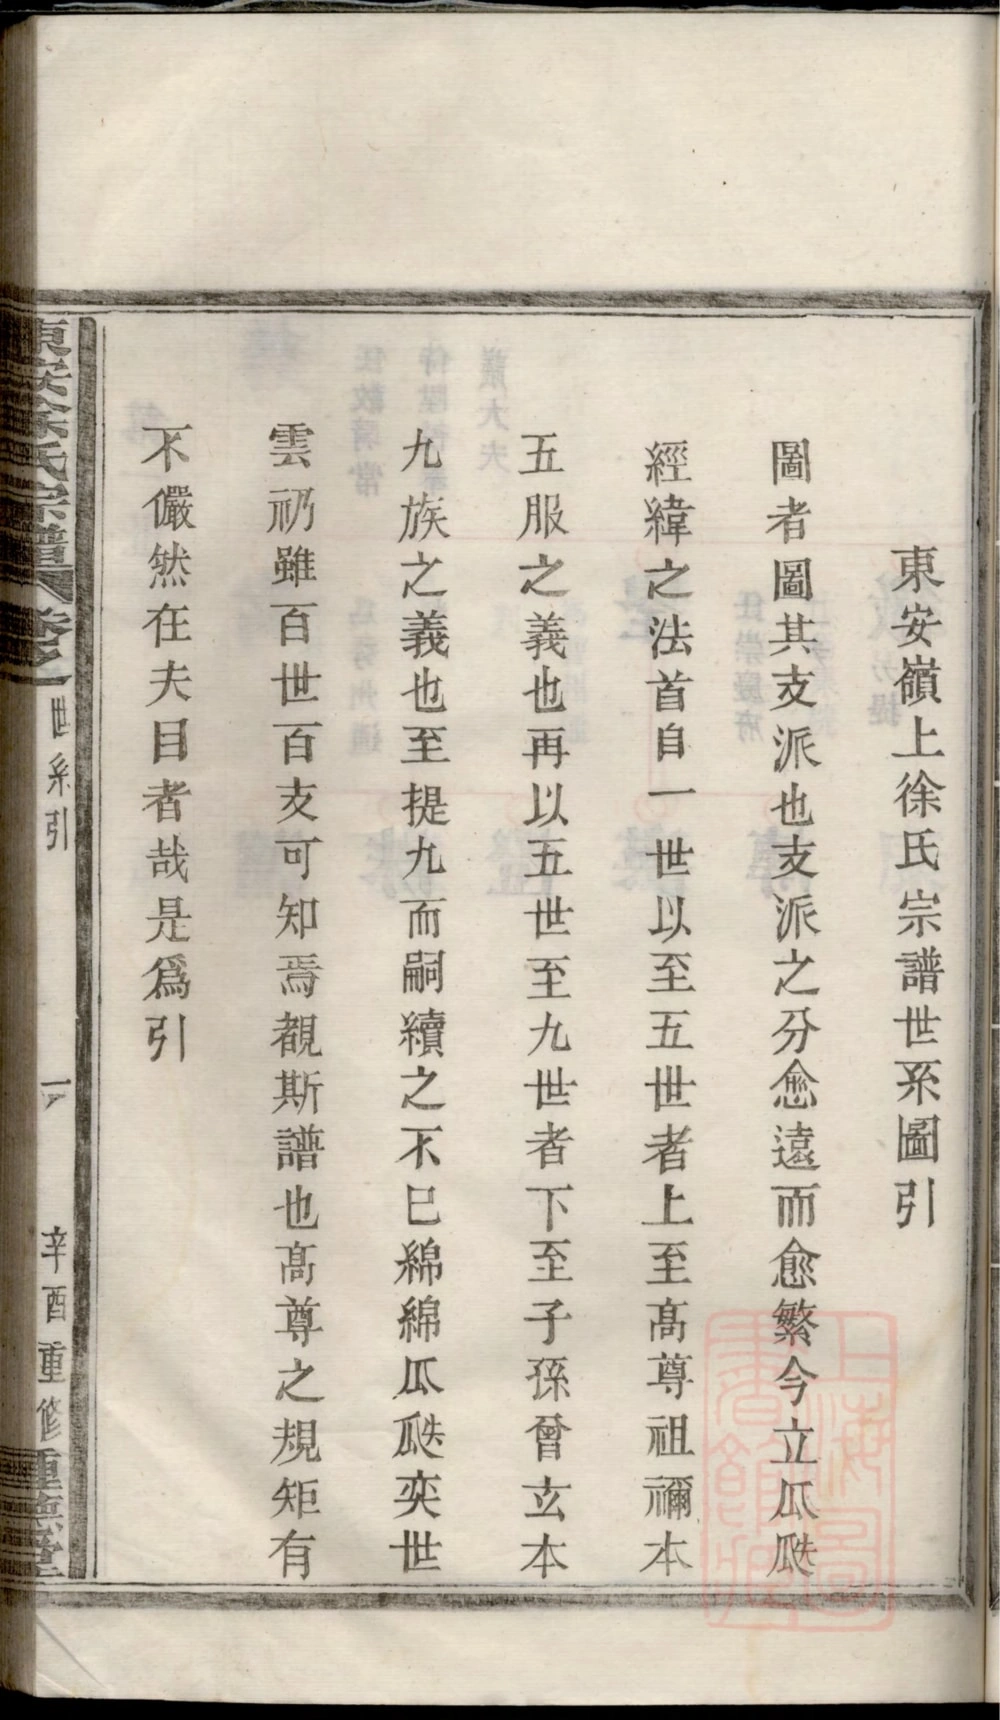 東安嶺上徐氏宗譜世系圖引
圖者圖其支派也支派之分愈遠而愈繁今立瓜瓞
經緯之法首自一世以至五世者上至髙尊祖禰本
五服之義也再以五世至九世者下至子孫曾玄本
九族之義也至提九而嗣續之不巳綿綿瓜瓞奕世
雲礽雖百世百支可知焉覩斯譜也髙尊之規矩有
不儼然在夫目者哉是爲引
東安徐氏宗譜 卷之 世系引 一 辛酉重修
上海圖書館藏